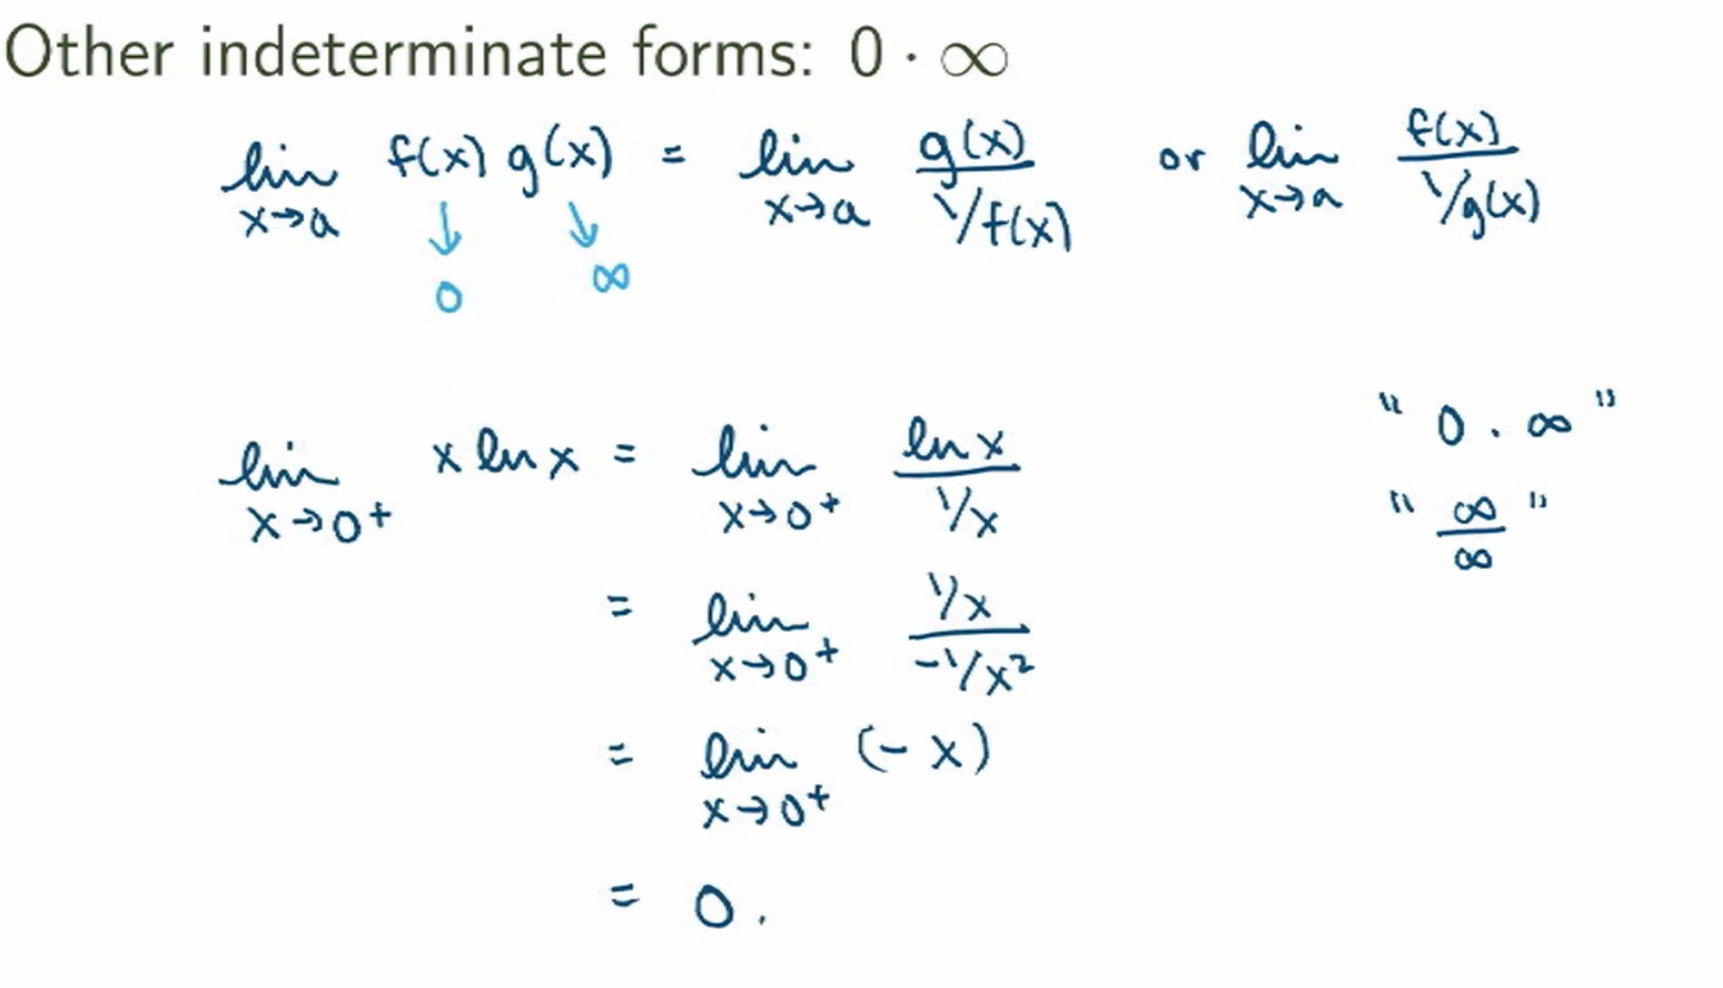 Other indeterminate forms: 0 · ∞
lim x→a f(x) g(x) = lim x→a g(x) / (1/f(x)) or lim x→a f(x) / (1/g(x))
↓ ↓
0 ∞
lim x→0⁺ x ln x = lim x→0⁺ ln x / (1/x) " 0 · ∞ "
" ∞/∞ "
= lim x→0⁺ (1/x) / (-1/x²)
= lim x→0⁺ (- x)
= 0.